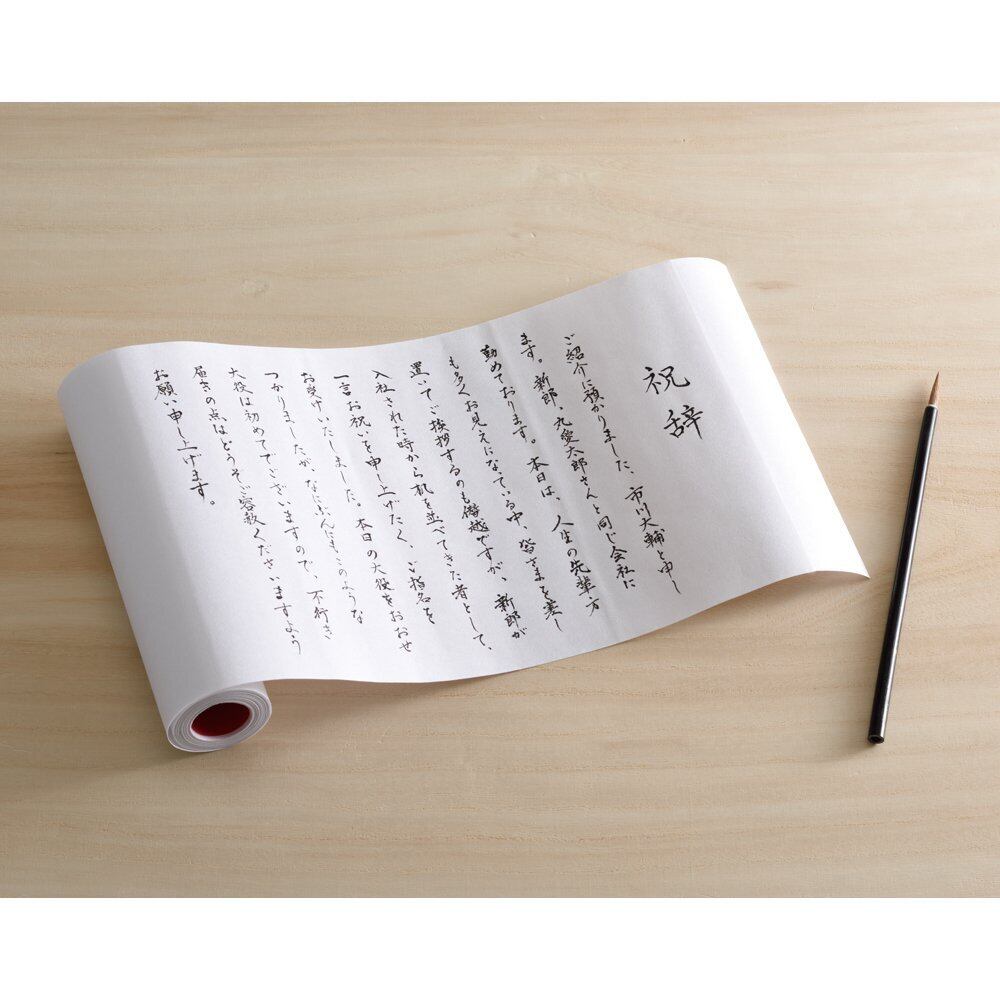 祝辞
ご紹介に預かりました、市川大輔と申し
ます。新郎、九愛太郎さんと同じ会社に
勤めております。本日は、人生の先輩方
も多くお見えになっている中、皆さまを差し
置いてご挨拶するのも僭越ですが、新郎が
入社された時から机を並べてきた者として、
一言お祝いを申し上げたく、ご指名を
お受けいたしました。本日の大役をおおせ
つかりましたが、なにぶんにもこのような
大役は初めてでございますので、不行き
届きの点はどうぞご容赦くださいますよう
お願い申し上げます。